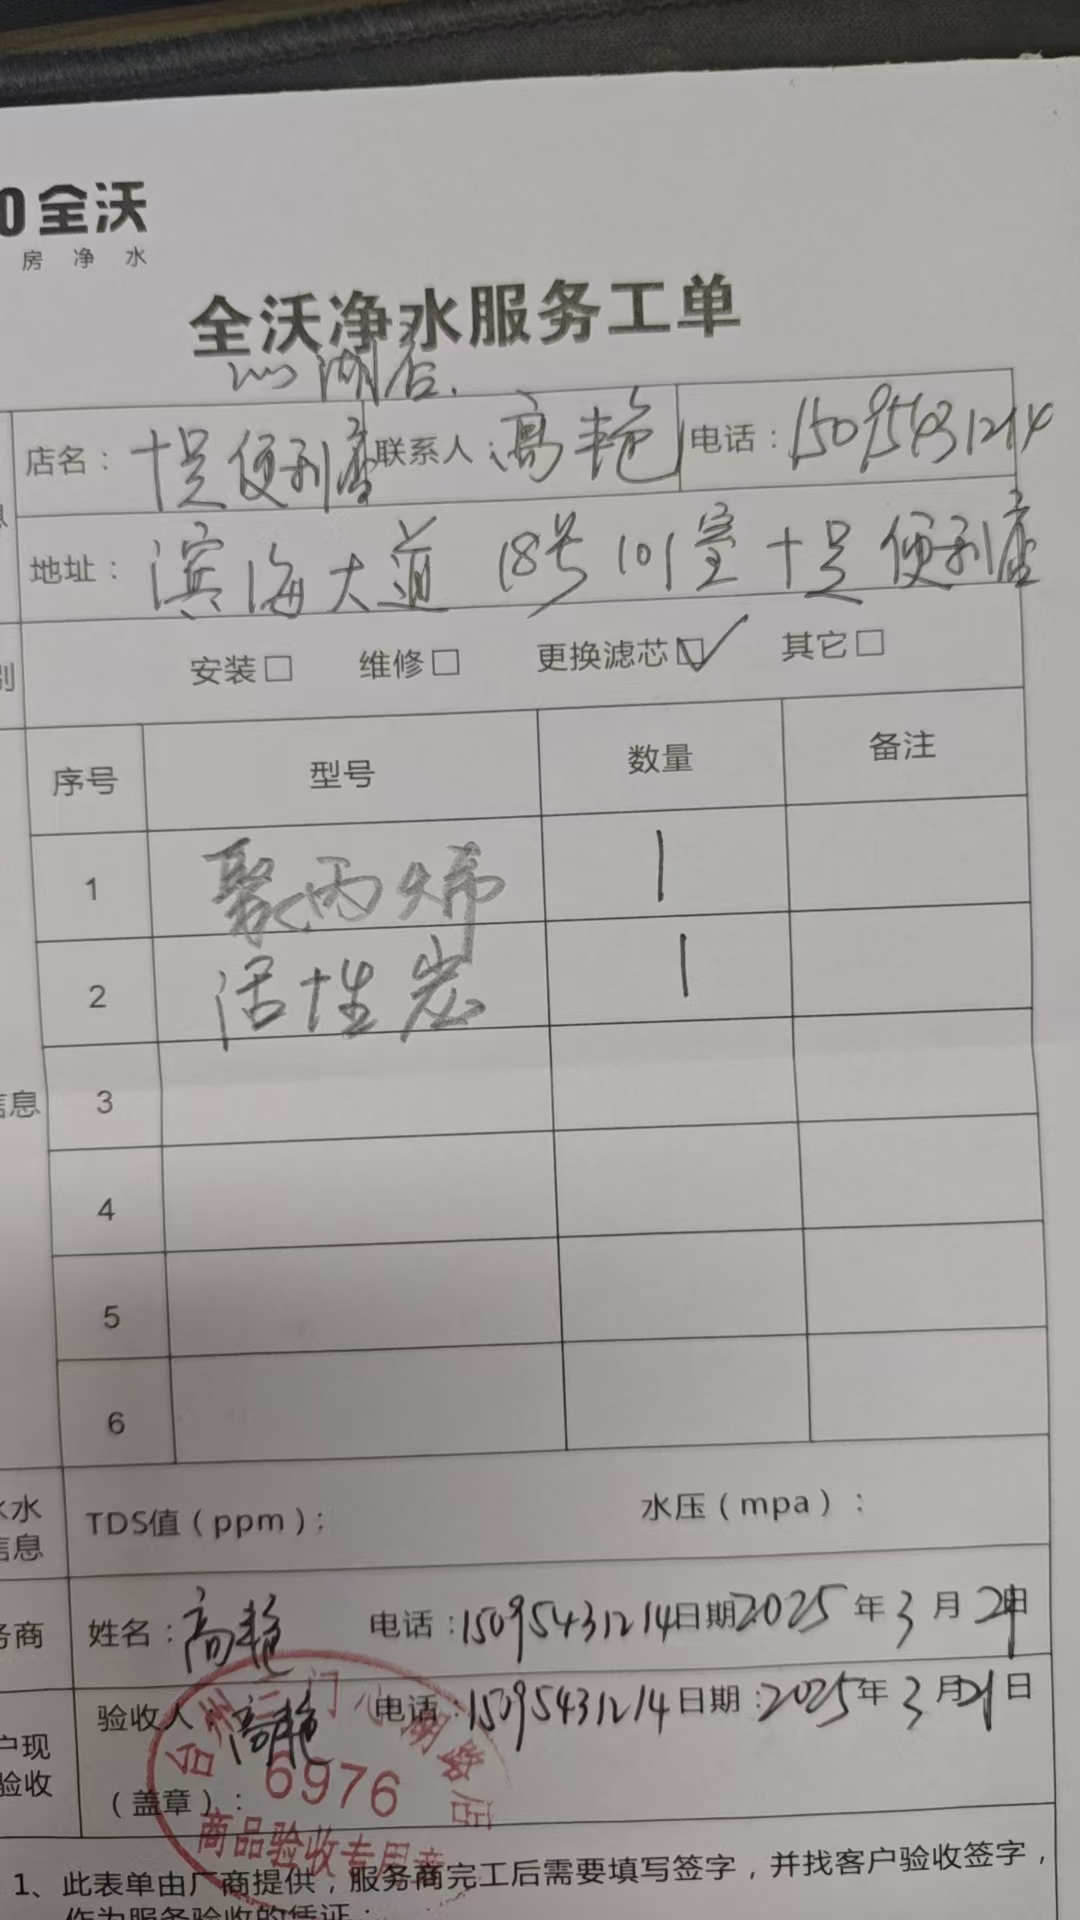 0全沃
房净水
全沃净水服务工单
心湖店.
店名：十足便利店 联系人：高艳 电话：15095431214
地址：滨海大道18号101室十足便利店
别 安装□ 维修□ 更换滤芯□✓ 其它□
序号 型号 数量 备注
1 聚丙烯 1
2 活性炭 1
信息 3
4
5
6
水水 TDS值（ppm）： 水压（mpa）：
信息
务商 姓名：高艳 电话：15095431214 日期 2025年3月21日
户现 验收人 高艳 电话：15095431214 日期：2025年3月21日
验收 （盖章）：
台州三门心湖路店
6976
商品验收专用章
1、此表单由厂商提供，服务商完工后需要填写签字，并找客户验收签字，
作为服务验收的凭证；